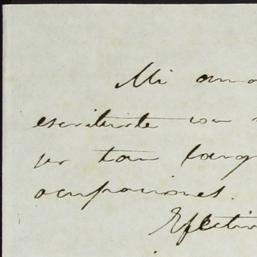 Mi am
escribirte con
ser tan larg
ocupaciones.
Efectiv